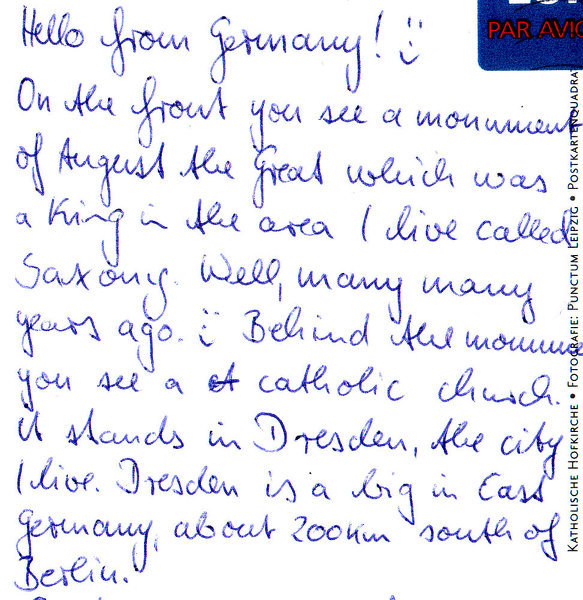 Hello from Germany! :)
On the front you see a monument
of August the Great which was
a King in the area I live called
Saxony. Well, many many
years ago. :) Behind the monume
you see a catholic church.
it stands in Dresden, the city
I live. Dresden is a big in East
Germany, about 200km south of
Berlin.
PAR AVIO
KATHOLISCHE HOFKIRCHE • FOTOGRAFIE: PUNCTUM LEIPZIG • POSTKARTE QUADRA